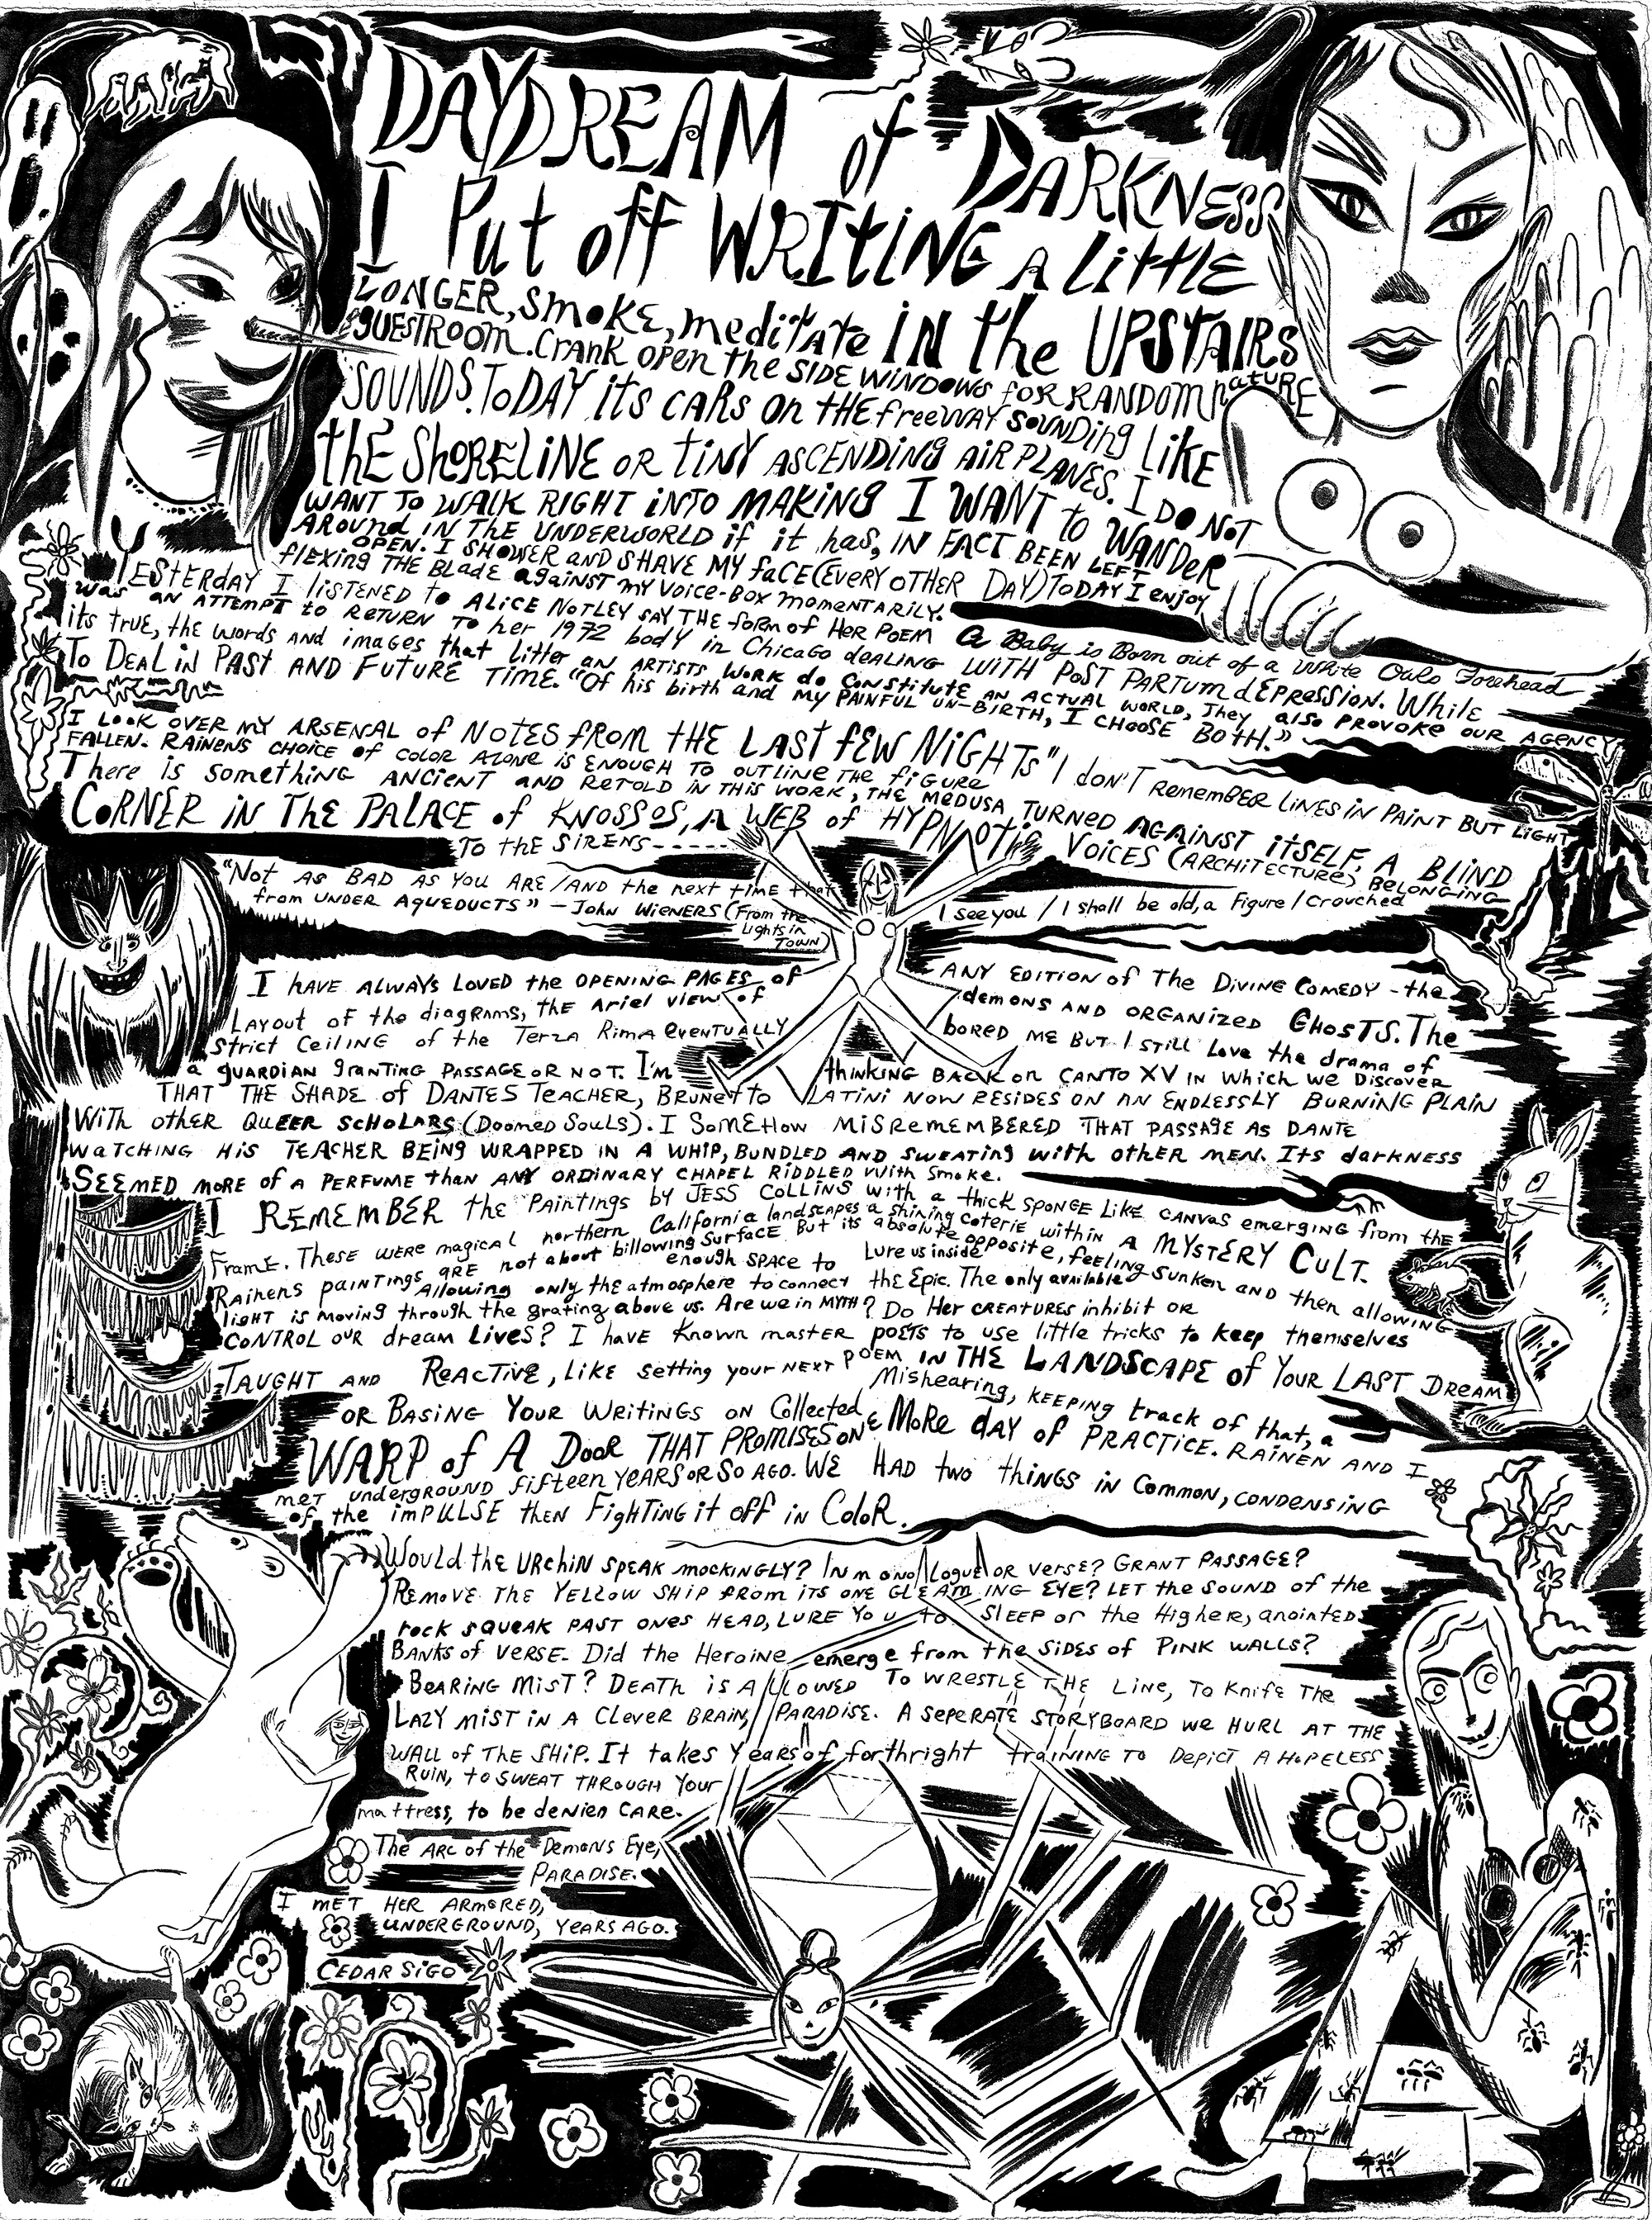 DAYDREAM of DARKNESS
I Put off WRITING A LittLE
LONGER, SMOKE, meditate IN the UPSTAIRS
GUESTROOM. CRANK OPEN the SIDE WINDOWS for RANDOM NATURE
SOUNDS. TODAY its CARS ON tHE freeWAY SOUNDing LiKE
thE SHORELINE OR tiNY ASCENDING AIRPLANES. I DO NOT
WANT TO WALK RIGHT INTO MAKING I WANT to WANDER
AROUND IN THE UNDERWORLD if it has, IN FACT BEEN LEFT
OPEN. I SHOWER AND SHAVE MY fACE (EVERY OTHER DAY) TODAY I enjoy
flexing THE BLADE against my Voice-Box momentarily.
YESTERDAY I listened to ALICE NOTLEY SAY THE form of HER POEM a Baby is Born out of a White Owls Forehead
was an ATTEMPT to RETURN TO her 1972 body in Chicago dEALING WITH POST PARTUM dEPRESSION. While
its true, the words AND images that litter an ARTISTS WORK do CONSTITUTE AN ACTUAL WORLD, They also PROVOKE OUR AGENCY
To DEAL in PAST AND FUTURE TIME. "Of his birth and my PAINFUL UN-BIRTH, I CHOOSE BOTH."
I LOOK OVER MY ARSENAL of NOTES from THE LAST fEW NIGHTS "I DON'T REMEMBER LINES IN PAINT BUT LIGHT
FALLEN. RAINENS CHOICE of COLOR ALONE IS ENOUGH TO OUTLINE THE FIGURE
There is something ANCIENT AND RETOLD IN THIS WORK, THE MEDUSA TURNED AGAINST ITSELF, A BLIND
CORNER IN THE PALACE of KNOSSOS, A WEB of HYPNOTIC VOICES (ARCHITECTURE) BELONGING
TO the SIRENS-----
"Not AS BAD AS YOU ARE/AND the next time that I see you / I shall be old, a Figure / Crouched
from UNDER AQUEDUCTS" - John WIENERS (From the
Lights in
TOWN)
I HAVE ALWAYS LOVED the OPENING PAGES of ANY EDITION of The DIVINE COMEDY - the
LAYOUT OF the diagrams, the Ariel view of demons AND ORGANIZED GHOSTS. The
Strict Ceiling of the Terza Rima eventually bored ME BUT I STILL Love the drama of
a GUARDIAN granting PASSAGE OR NOT. I'm thinking BACK on CANTO XV IN Which we Discover
THAT THE SHADE of DANTES TEACHER, BRUNETTO LATINI NOW RESIDES ON AN ENDLESSLY BURNING PLAIN
With other QUEER SCHOLARS (Doomed Souls). I SOMEHOW MISREMEMBERED THAT PASSAGE AS DANTE
WATCHING HIS TEACHER BEING WRAPPED IN A WHIP, BUNDLED AND SWEATING with other MEN. Its darkness
SEEMED MORE of A PERFUME than ANY ORDINARY CHAPEL RIDDLED With Smoke.
I REMEMBER the Paintings by JESS COLLINS with a thick SPONGE LIKE CANVAS emerging from the
FRAME. These WERE magical northern California landscapes a shining coterie within A MYSTERY CULT.
Rainens paintings ARE not about billowing Surface But its absolute opposite, feeling Sunken AND then allowing
Allowing only enough SPACE to Lure us inside
the atmosphere to connect the Epic. The only available
light is moving through the grating above us. Are we in MYTH? Do Her CREATURES inhibit OR
CONTROL our dream Lives? I have Known master poets to use little tricks to keep themselves
TAUGHT AND REACTIVE, LIKE Setting your NEXT POEM IN THE LANDSCAPE of YOUR LAST DREAM
OR BASING YOUR WRITINGS ON Collected Mishearing, KEEPING track of that, a
WARP of A DOOR THAT PROMISES ONE MORE day of PRACTICE. RAINEN AND I
met underground fifteen YEARS OR SO AGO. WE HAD two things in Common, CONDENSING
of the imPULSE THEN FIGHTING it off in COLOR.
Would the URCHIN SPEAK mockingly? IN monologue OR verse? GRANT PASSAGE?
REMOVE THE YELLOW SHIP from its ONE GLEAMING EYE? LET the SOUND of the
rock SQUEAK PAST ONES HEAD, LURE YOU to SLEEP or the Higher, anointed
BANKS of VERSE. Did the Heroine emerge from the SIDES of PINK WALLS?
BEARING MIST? DEATH is ALLOWED To WRESTLE THE LINE, To Knife The
LAZY MIST IN A Clever BRAIN, PARADISE. A SEPERATE STORYBOARD we HURL AT THE
WALL of THE SHIP. It takes years of forthright training to Depict A HOPELESS
RUIN, to SWEAT THROUGH Your
mattress, to be denied CARE.
The ARC of the Demons Eye,
PARADISE.
I MET HER ARMORED,
UNDERGROUND, YEARS AGO.
CEDAR SIGO